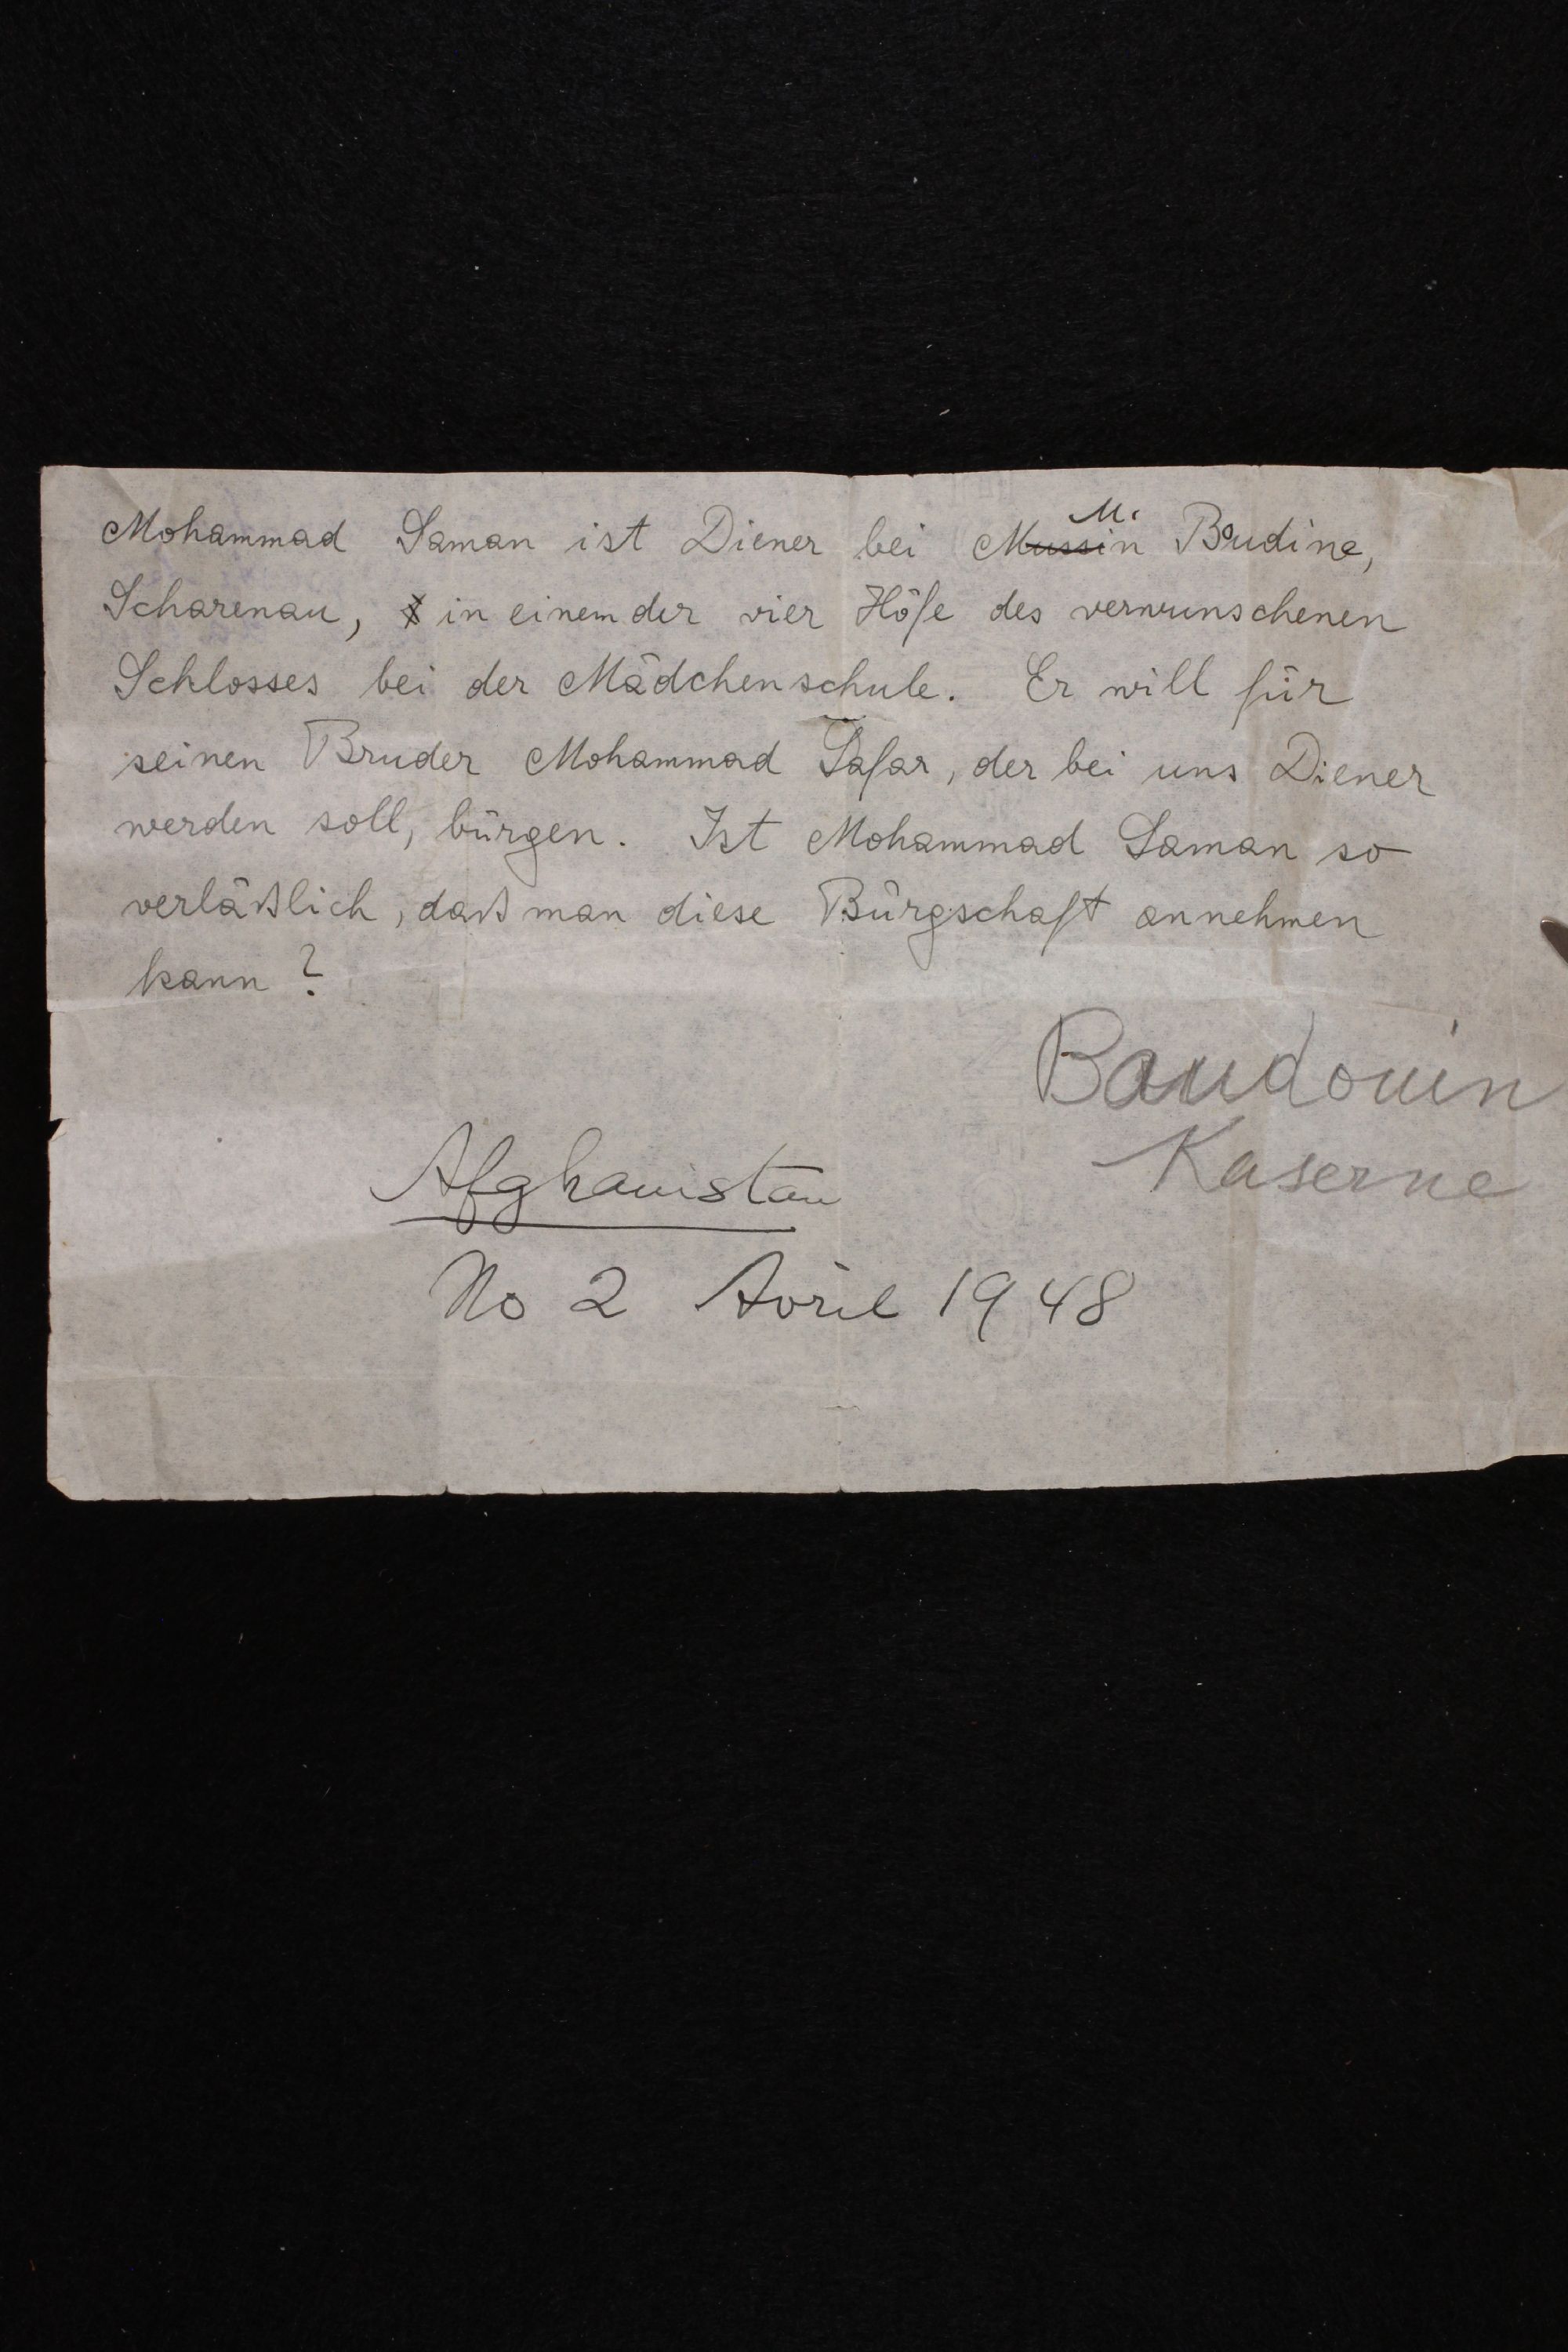 Mohammad Saman ist Diener bei M. Baudine,
Scharenau, in einem der vier Höfe des verwunschenen
Schlosses bei der Mädchenschule. Er will für
seinen Bruder Mohammad Safar, der bei uns Diener
werden soll, bürgen. Ist Mohammad Saman so
verläßlich, daß man diese Bürgschaft annehmen
kann?
Baudouin
Kaserne
Afghanistan
No 2 Avril 1948